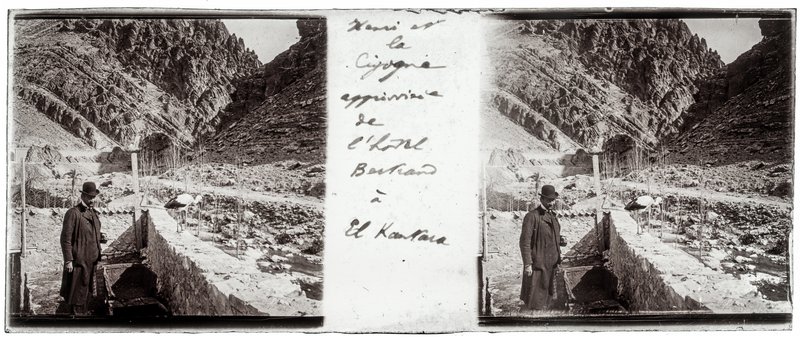 Henri et
la
Cigogne
apprivoisée
de
l'hôtel
Bertrand
à
El Kantara